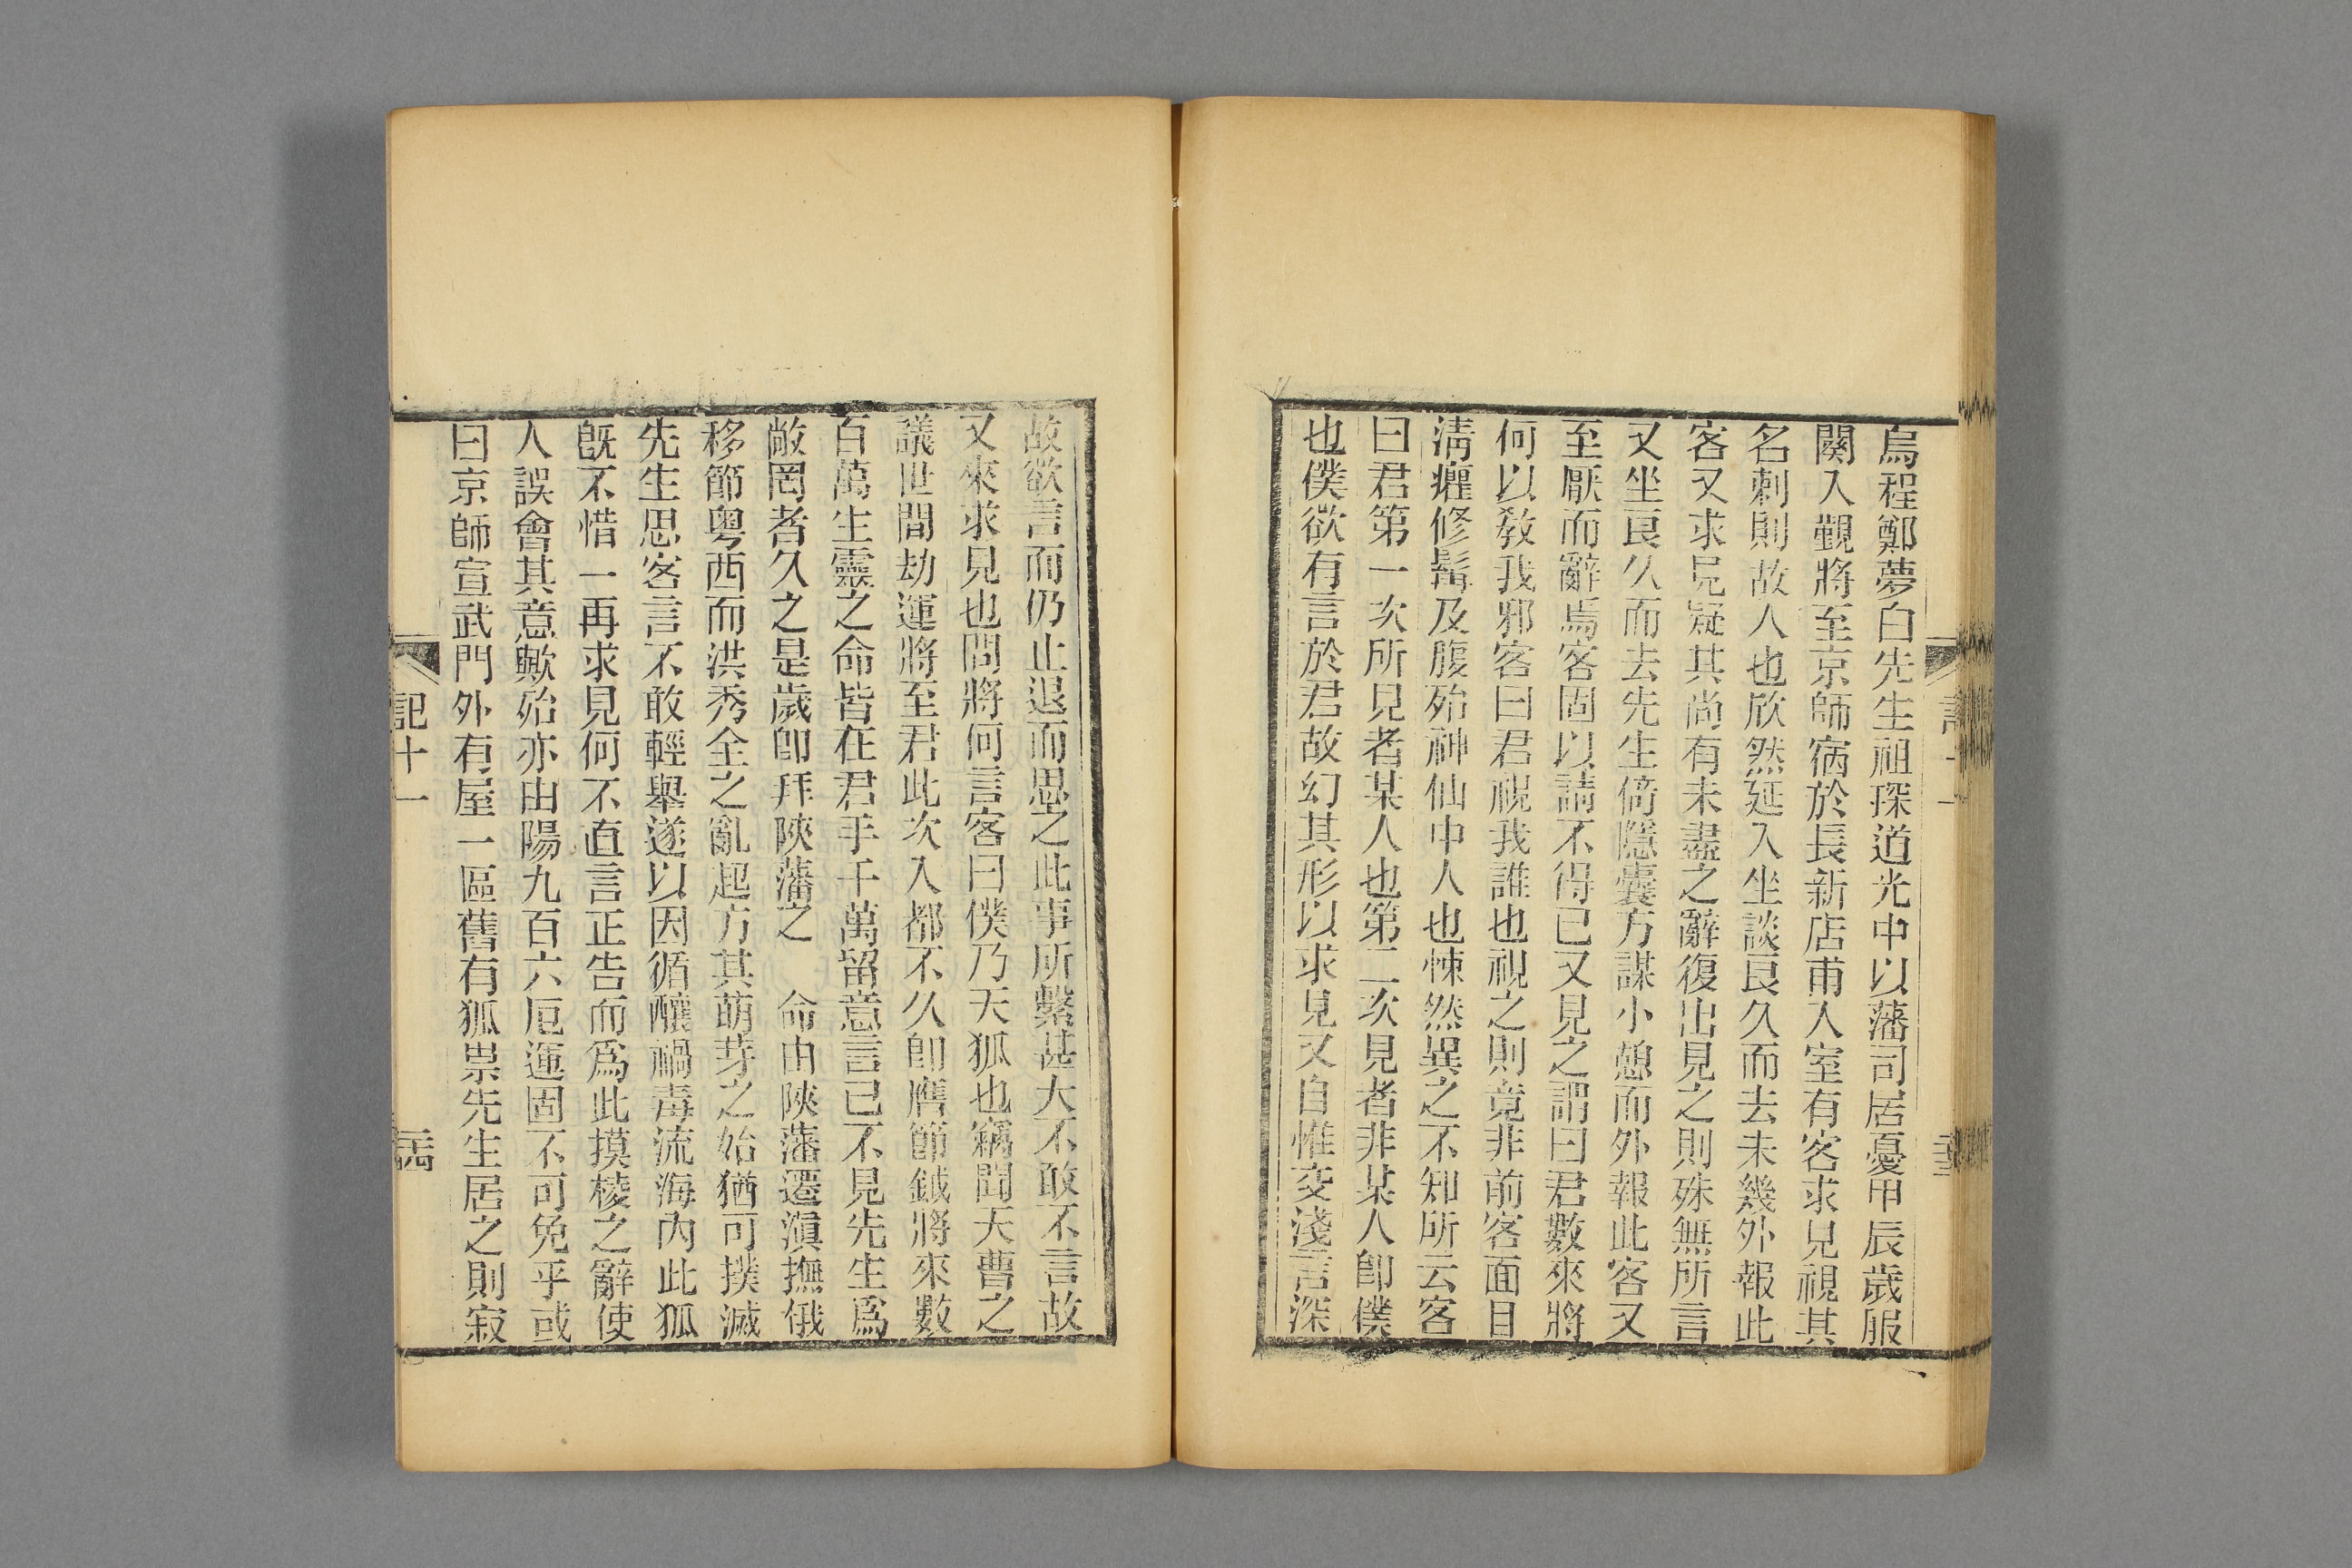 烏程鄭夢白先生祖琛道光中以藩司居憂甲辰歲服
闋入覲將至京師宿於長新店甫入室有客求見視其
名刺則故人也欣然延入坐談良久而去未幾外報此
客又求見疑其尚有未盡之辭復出見之則殊無所言
又坐良久而去先生倚隱囊方謀小憩而外報此客又
至厭而辭焉客固以請不得已又見之謂曰君數來將
何以敎我邪客曰君視我誰也視之則竟非前客面目
淸癯修髯及腹殆神仙中人也悚然異之不知所云客
曰君第一次所見者某人也第二次見者非某人卽僕
也僕欲有言於君故幻其形以求見又自惟交淺言深
故欲言而仍止退而思之此事所繫甚大不敢不言故
又來求見也問將何言客曰僕乃天狐也竊聞天曹之
議世間劫運將至君此次入都不久卽膺節鉞將來數
百萬生靈之命皆在君手千萬留意言已不見先生爲
敞罔者久之是歲卽拜陝藩之　命由陝藩遷滇撫俄
移節粵西而洪秀全之亂起方其萌芽之始猶可撲滅
先生思客言不敢輕舉遂以因循釀禍毒流海內此狐
旣不惜一再求見何不直言正告而爲此摸棱之辭使
人誤會其意歟殆亦由陽九百六厄運固不可免乎或
曰京師宣武門外有屋一區舊有狐祟先生居之則寂
記十一